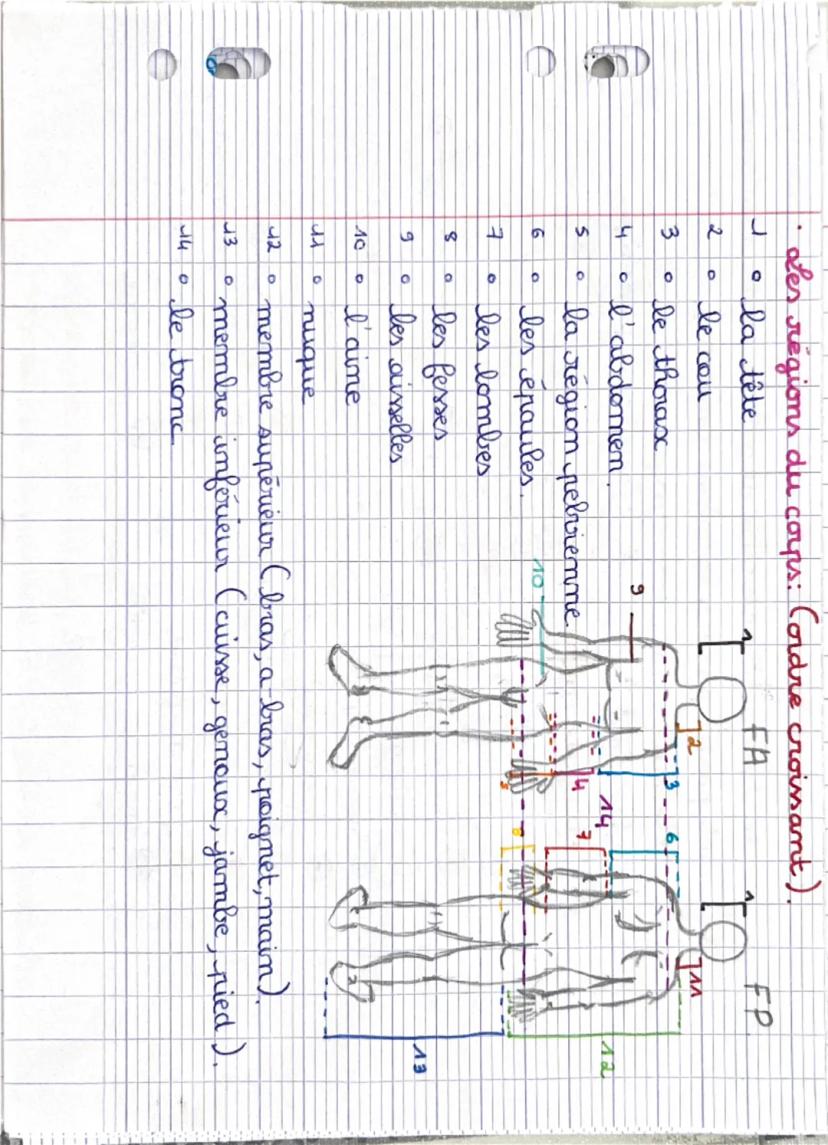 . Les régions du corps: (ordre croissant).
1 o la tête
2 o le cou
3 o le thorax
4 o l'abdomen.
5 o la région pelvienne.
6 o les épaules.
7 o les lombes
8 o les fesses
9 o les aisselles
10 o l'aine
11 o nuque
12 o membre supérieur (bras, a-bras, poignet, main).
13 o membre inférieur (cuisse, genoux, jambe, pied).
14 o le tronc
FA
1
2
3
9
4
14
5
10
FP
1
11
6
7
8
12
13